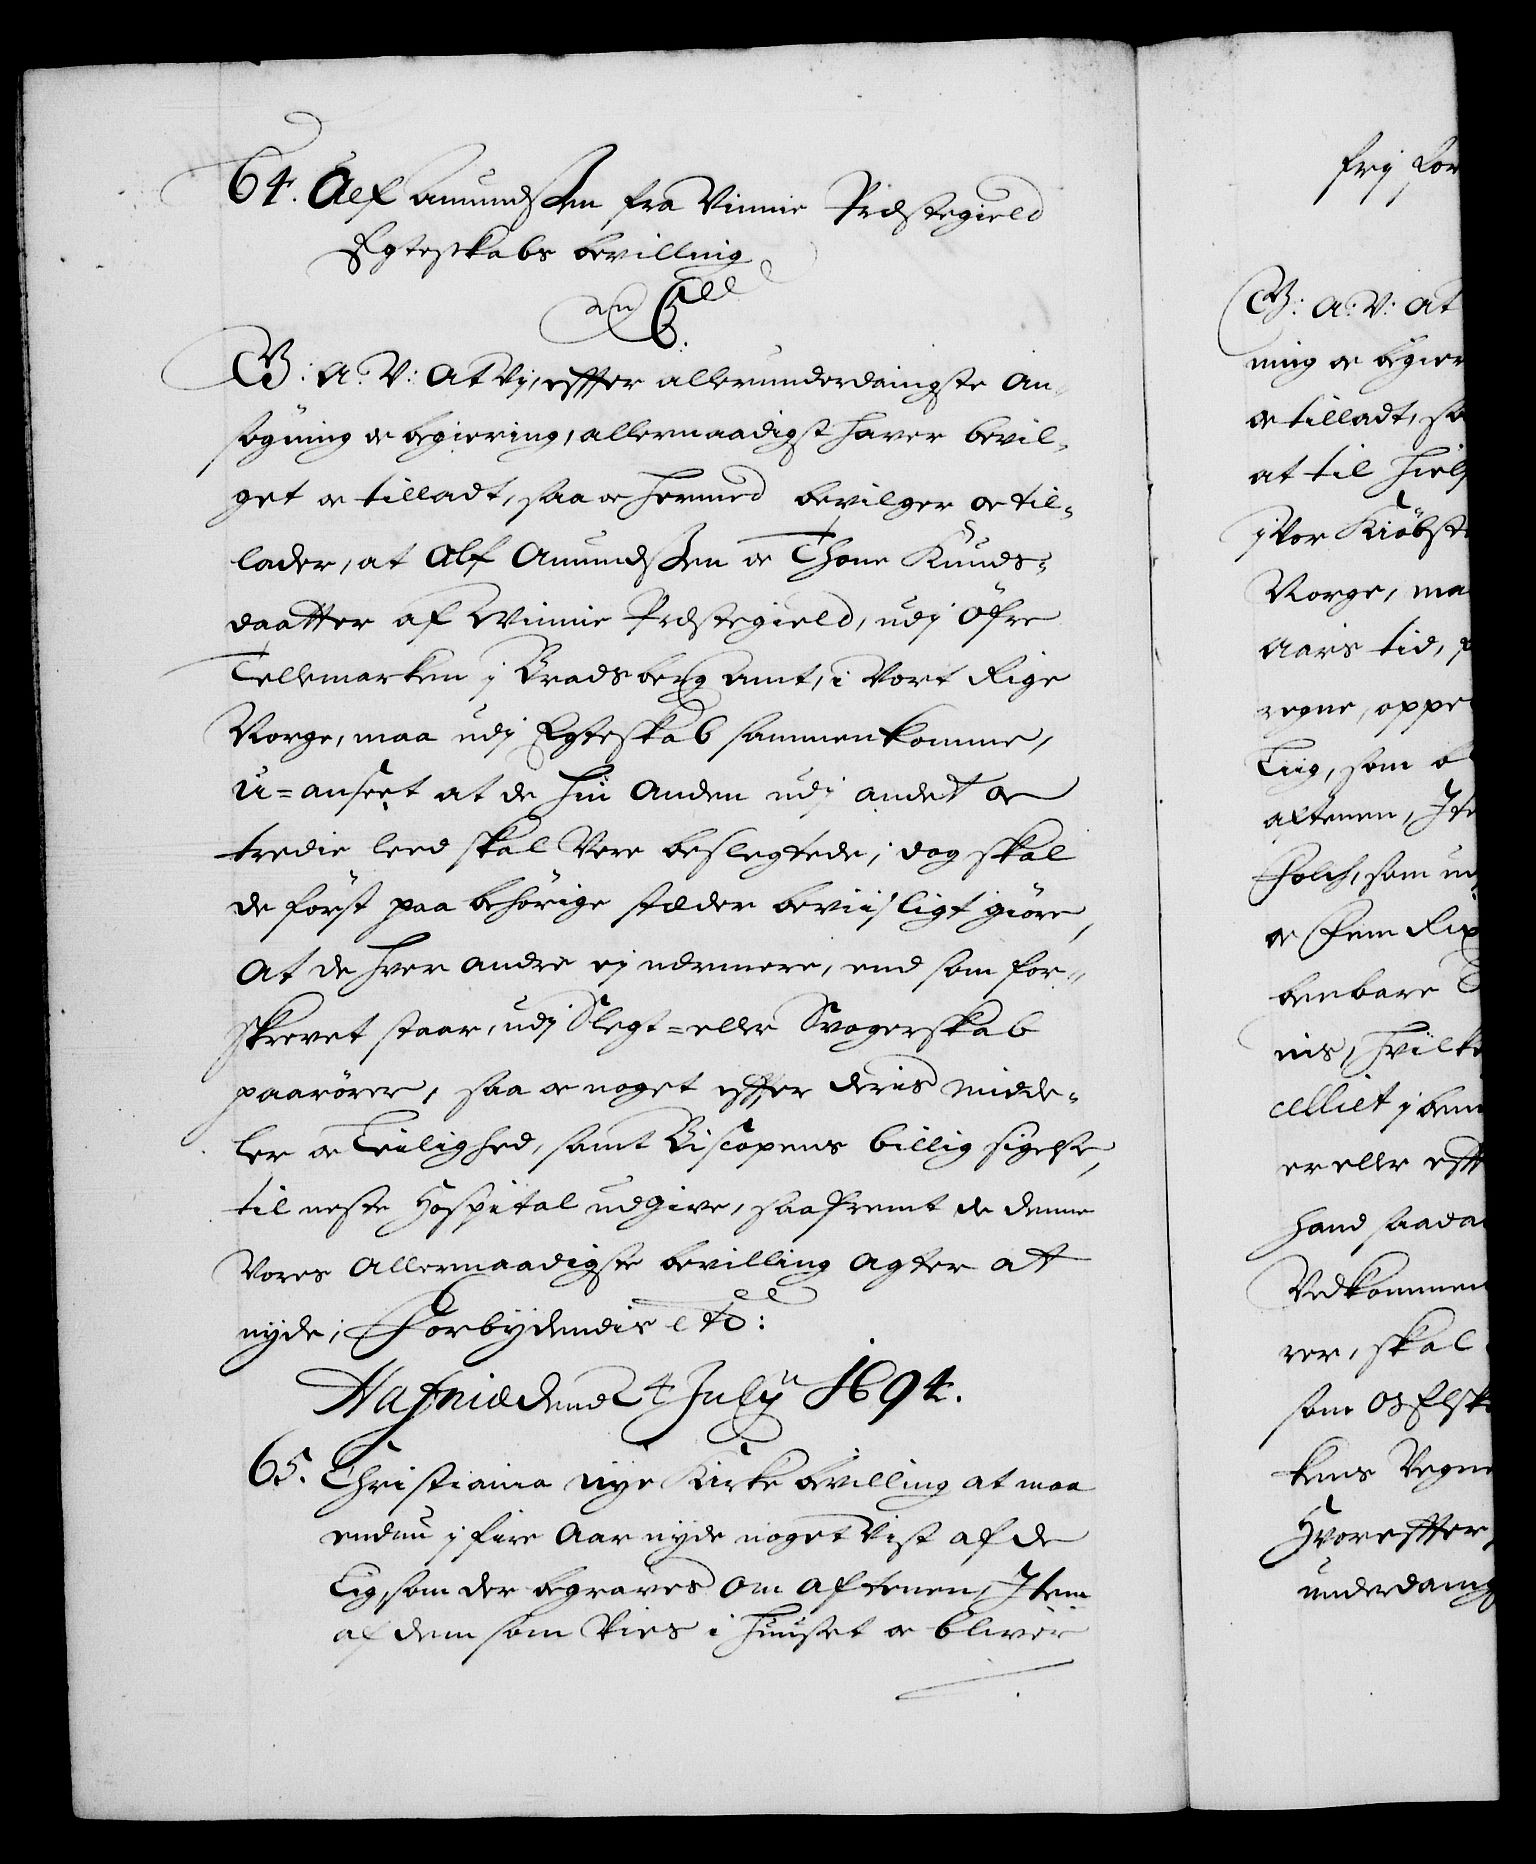 64. Alf Amundsen fra Vinnie Præstegield
Egteskabs bevilling
C5.
G: A: V: At Vi, effter allerunderdanigste an-
søgning oc begiering, allernaadigst haver bevil-
get oc tilladt, saa oc hermed bevilger oc til-
lader, at Alf Amundsen oc Thone Knuds-
daatter af Winnie Præstegield, udj Öfre
Tellemarken j Bradsberg Amt, i Vort Rige
Norge, maa udj Egteskab sammenkomme,
U-anseet at de hin Anden udj andet oc
tredie leed skal Vere beslegtede; dog skal
de först paa behörige stæder beviisligt giöre,
At de hver andre ej nærmere, end som for-
skrevet staar, udj Slegt- eller Svogerskab
paarörer, saa oc noget effter deris midde-
ler oc Leilighed, samt Biscopens billig sigelse,
til neste Hospital udgive, saafremt de denne
Vores Allernaadigste bevilling agter at
nyde; Forbydendis etc:
Hafniæ dend 24 Julij 1694.
65. Christiania nye Kirke bevilling at maa
endnu j fire Aar nyde noget Vist af de
Lig, som der begraves om Aftenen, Item
af dem som Vies i Huuset oc bliver
frj for
G: A: V: At
ning oc begier
oc tilladt, sa
at til hielp
j Vor Kiöbste
Norge, ma
Aars tid,
regne, oppe
Liig, som b
aftenen, Ite
Folch, som ud
oc Fem Rix
benbare
nis, hvilke
celliet j bem
er eller efft
hand saada
Vedkommen
rer, skal
som Os Elske
kens Vegne
Hvoreffter
underdanig